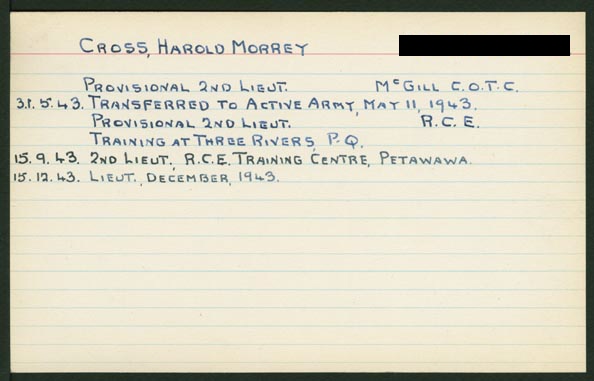 CROSS, HAROLD MORREY
PROVISIONAL 2ND LIEUT. McGILL C.O.T.C.
31.5.43. TRANSFERRED TO ACTIVE ARMY, MAY 11, 1943.
PROVISIONAL 2ND LIEUT. R.C.E.
TRAINING AT THREE RIVERS, P.Q.
15.9.43. 2ND LIEUT., R.C.E. TRAINING CENTRE, PETAWAWA.
15.12.43. LIEUT., DECEMBER, 1943.